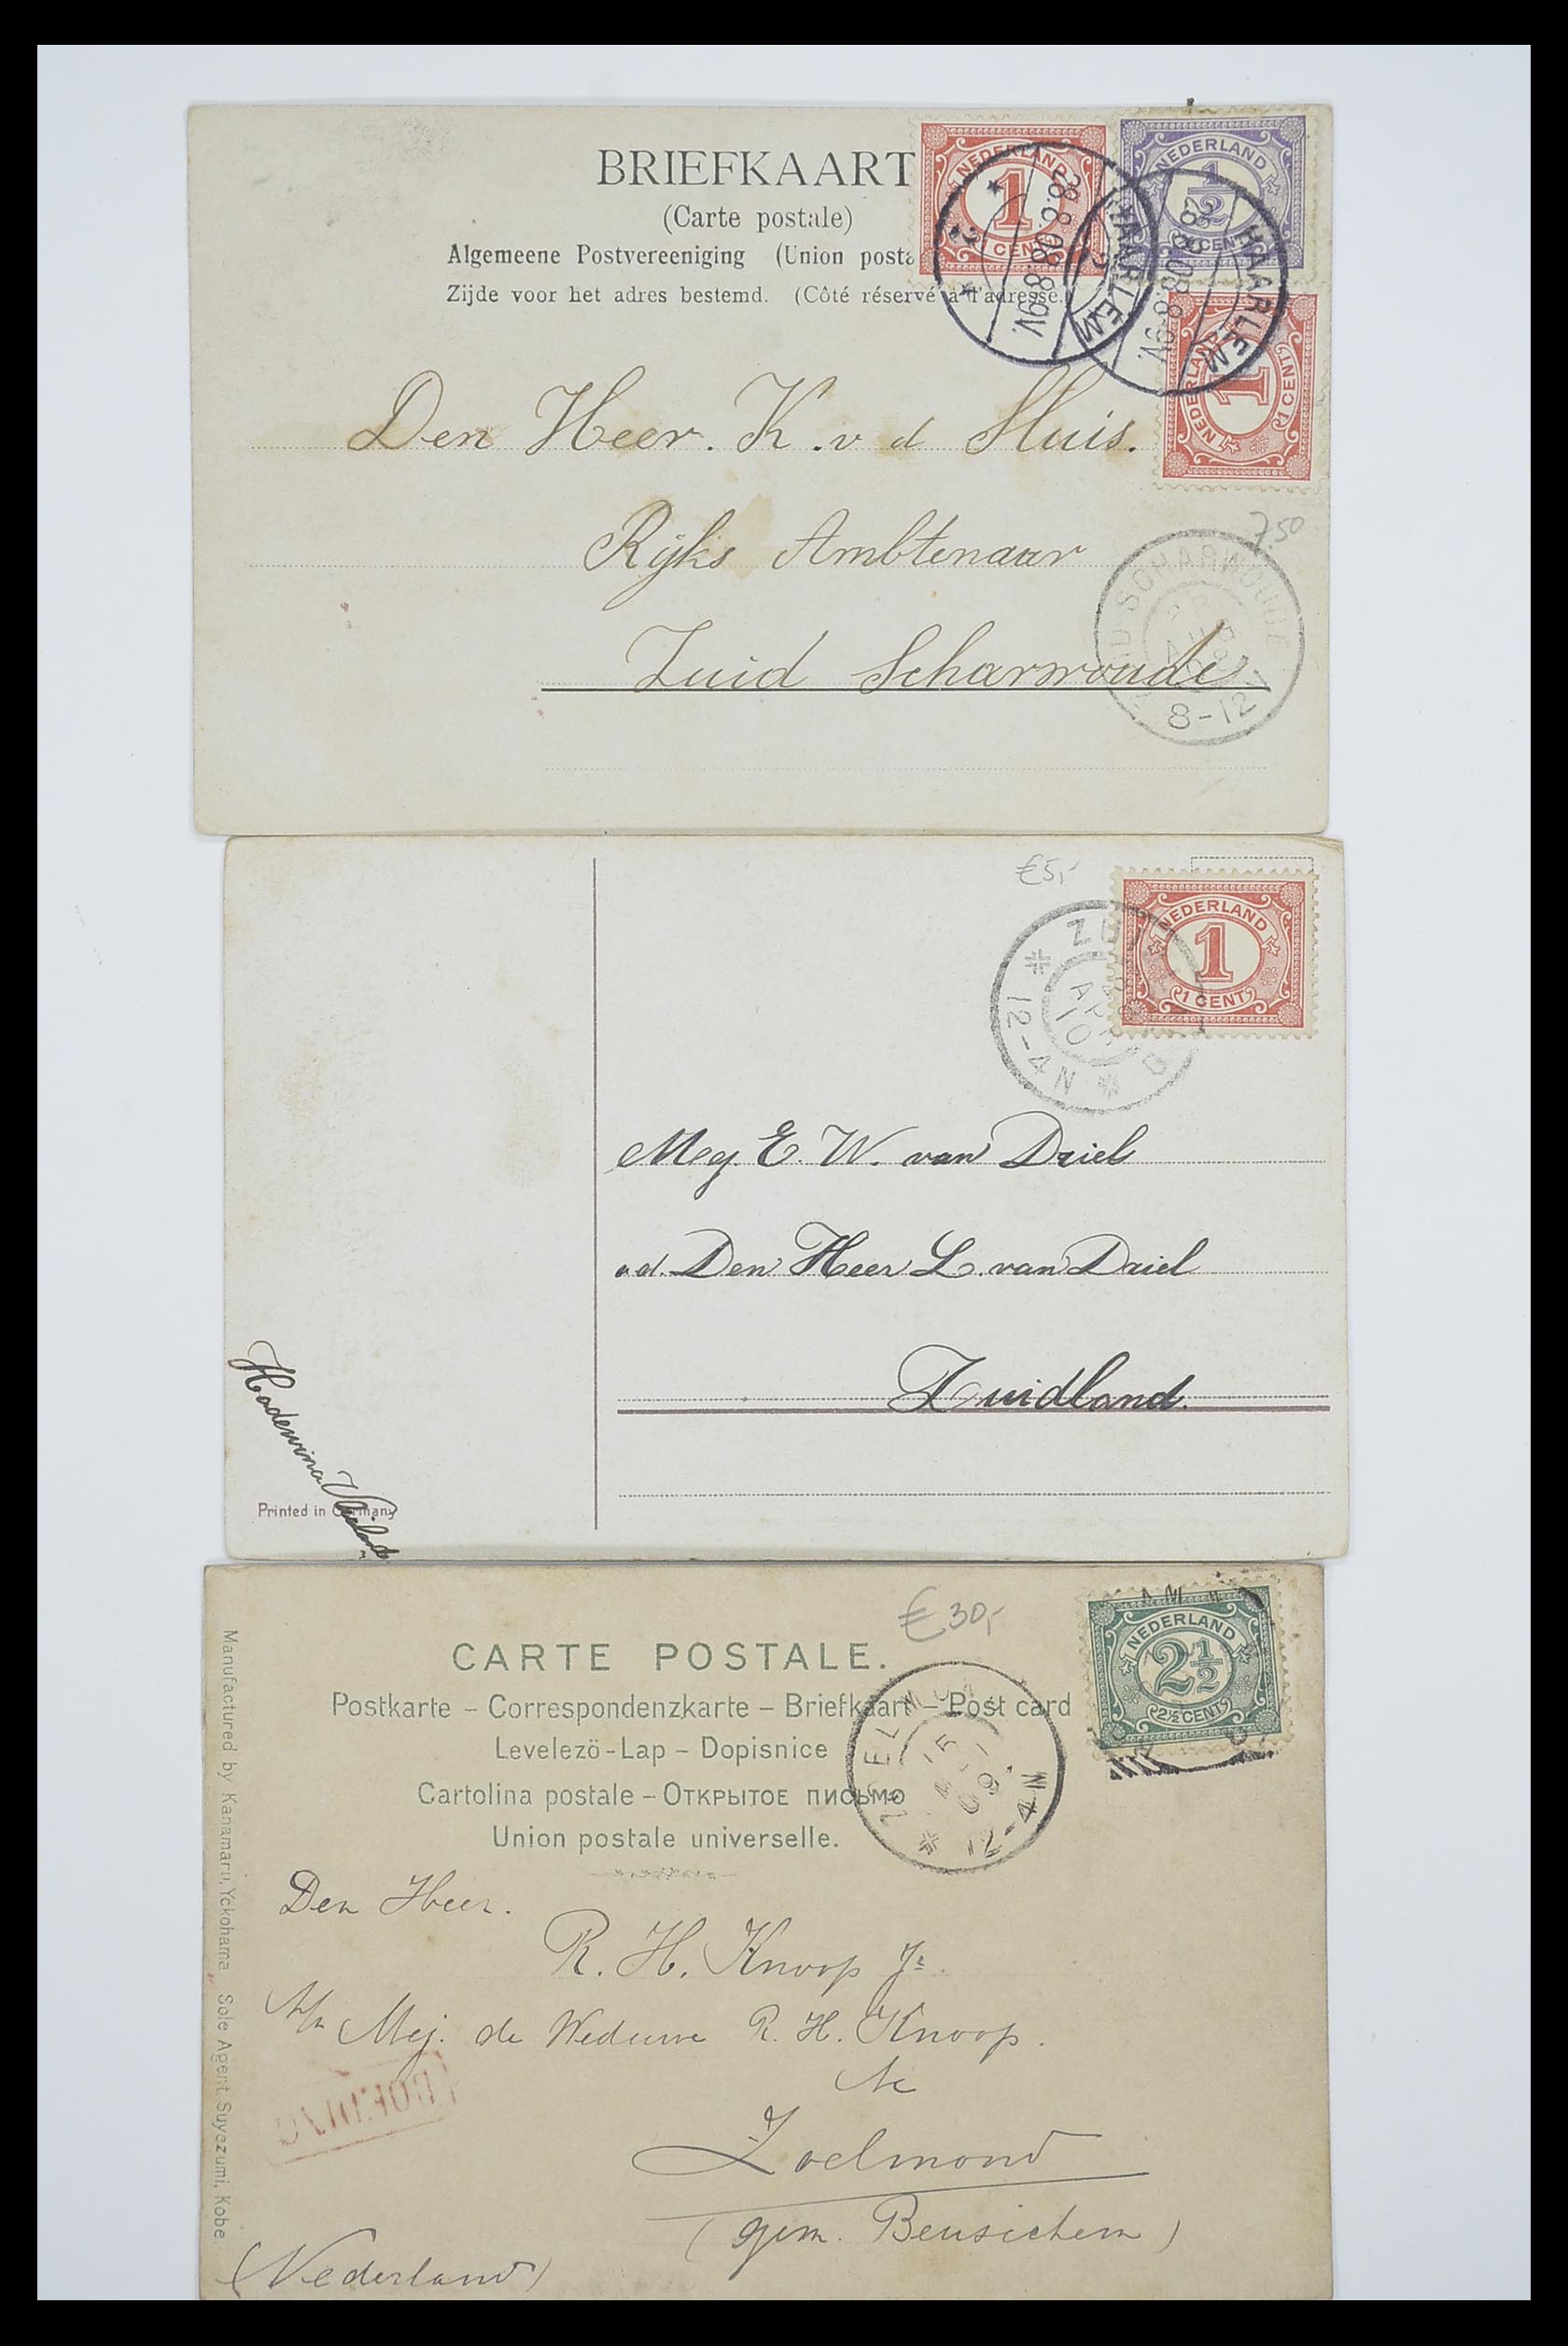 BRIEFKAART
(Carte postale)
Algemeene Postvereeniging (Union posta
Zijde voor het adres bestemd. (Côté réservé à l'adresse.)
NEDERLAND
1
1 CENT
NEDERLAND
1/2
1/2 CENT
NEDERLAND
1
1 CENT
HAARLEM
2
28.8.08.8-9V.
HAARLEM
28.8.08.8-9V.
Den Heer. K. v d Sluis.
7.50
Rijks Ambtenaar
ZUID SCHARWOUDE
8-12
Zuid Scharwoude
€5,-
NEDERLAND
1
1 CENT
ZU
APR
10
12-4N
Mej. E. W. van Driel
a.d. Den Heer L. van Driel
Zuidland.
Hadewina
Printed in Germany
€30,-
NEDERLAND
2 1/2
2½ CENT
CARTE POSTALE.
Postkarte – Correspondenzkarte – Briefkaart – Post card
Levelezö-Lap – Dopisnice
Cartolina postale – Открытое письмо
Union postale universelle.
ZOELMOND
12-4N
Manufactured by Kanamaru, Yokohama Sole Agent Suyezumi, Kobe.
Den Heer.
R. H. Knoop Jr
p/a Mej. de Weduwe R. H. Knoop.
te
Zoelmond
(gem. Beusichem)
(Nederland)